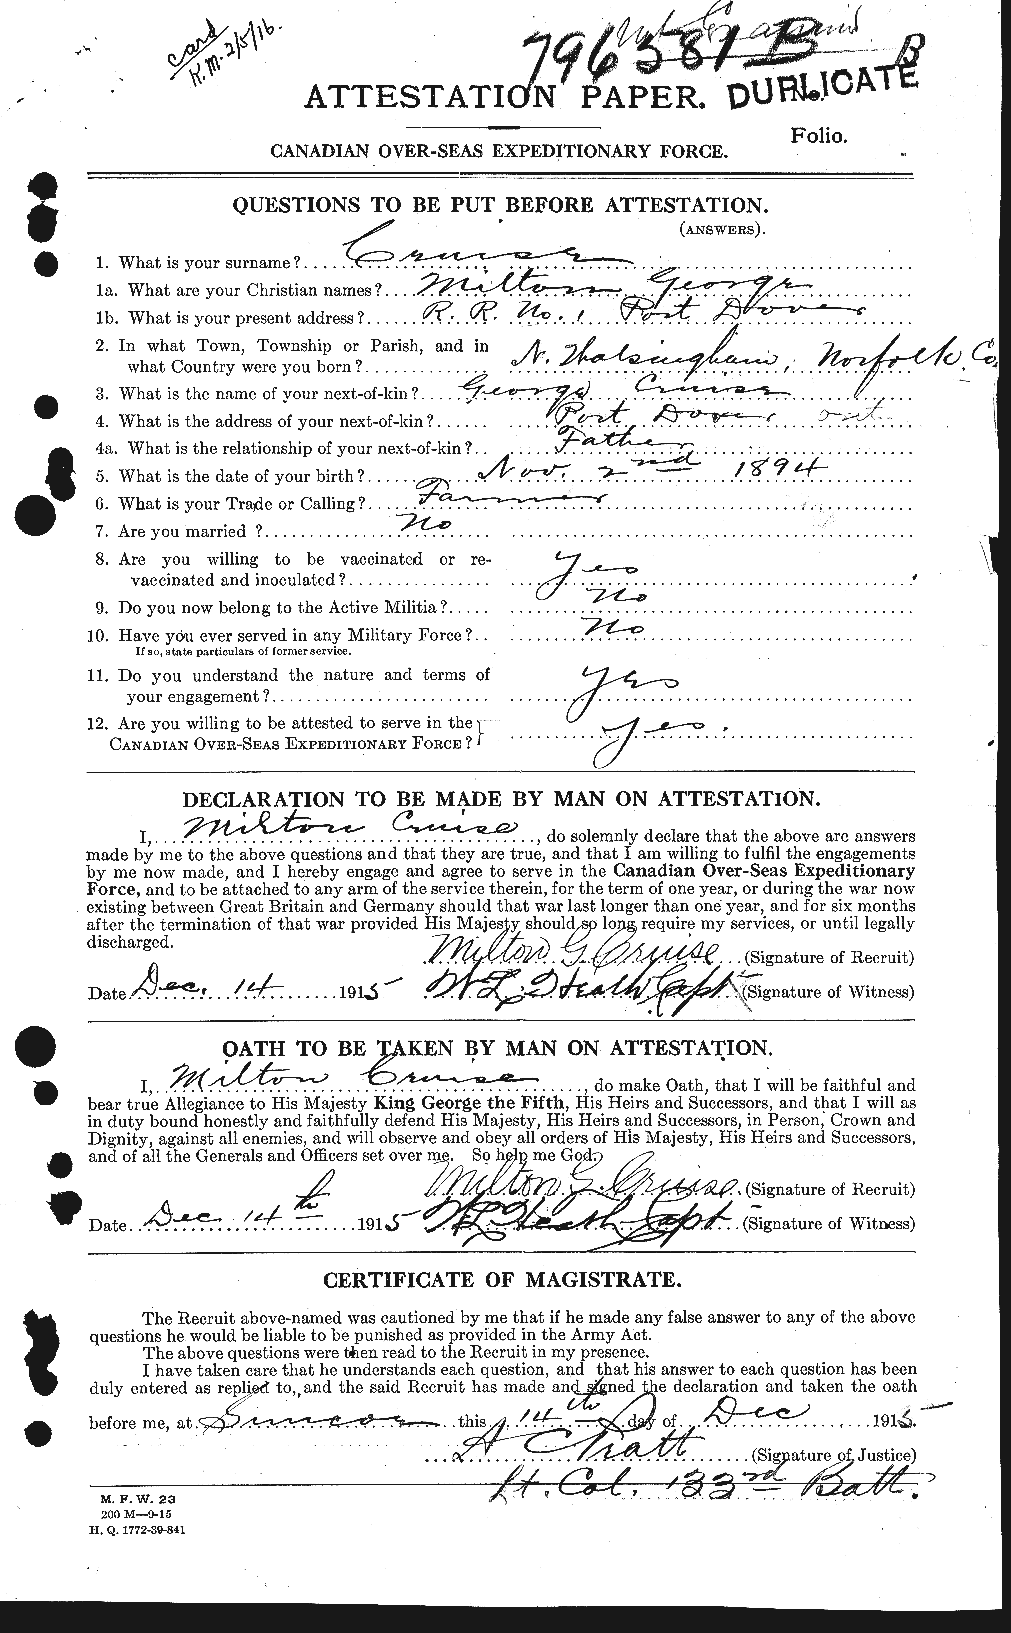 card
K.M. 2/5/16.
796381 B
B
ATTESTATION PAPER. DUPLICATE
Folio.
CANADIAN OVER-SEAS EXPEDITIONARY FORCE.
QUESTIONS TO BE PUT BEFORE ATTESTATION.
(ANSWERS).
1. What is your surname?.... Cruise
1a. What are your Christian names?.... Milton George
1b. What is your present address?.... R. R. No. 1 Port Dover
2. In what Town, Township or Parish, and in
what Country were you born?.... N. Walsingham, Norfolk Co.
3. What is the name of your next-of-kin?.... George Cruise
4. What is the address of your next-of-kin?.... Port Dover, Ont
4a. What is the relationship of your next-of-kin?.... Father
5. What is the date of your birth?.... Nov. 2nd 1894
6. What is your Trade or Calling?.... Farmer
7. Are you married ?.... No
8. Are you willing to be vaccinated or re-
vaccinated and inoculated?.... Yes
9. Do you now belong to the Active Militia?.... No
10. Have you ever served in any Military Force?.. No
If so, state particulars of former service.
11. Do you understand the nature and terms of
your engagement?.... Yes
12. Are you willing to be attested to serve in the
CANADIAN OVER-SEAS EXPEDITIONARY FORCE? Yes.
DECLARATION TO BE MADE BY MAN ON ATTESTATION.
I, Milton Cruise, do solemnly declare that the above are answers
made by me to the above questions and that they are true, and that I am willing to fulfil the engagements
by me now made, and I hereby engage and agree to serve in the Canadian Over-Seas Expeditionary
Force, and to be attached to any arm of the service therein, for the term of one year, or during the war now
existing between Great Britain and Germany should that war last longer than one year, and for six months
after the termination of that war provided His Majesty should so long require my services, or until legally
discharged.
Milton G Cruise (Signature of Recruit)
Date Dec. 14 1915 W L Heath Capt (Signature of Witness)
OATH TO BE TAKEN BY MAN ON ATTESTATION.
I, Milton Cruise, do make Oath, that I will be faithful and
bear true Allegiance to His Majesty King George the Fifth, His Heirs and Successors, and that I will as
in duty bound honestly and faithfully defend His Majesty, His Heirs and Successors, in Person, Crown and
Dignity, against all enemies, and will observe and obey all orders of His Majesty, His Heirs and Successors,
and of all the Generals and Officers set over me. So help me God.
Milton G. Cruise. (Signature of Recruit)
Date Dec 14th 1915 W L Heath Capt (Signature of Witness)
CERTIFICATE OF MAGISTRATE.
The Recruit above-named was cautioned by me that if he made any false answer to any of the above
questions he would be liable to be punished as provided in the Army Act.
The above questions were then read to the Recruit in my presence.
I have taken care that he understands each question, and that his answer to each question has been
duly entered as replied to, and the said Recruit has made and signed the declaration and taken the oath
before me, at Simcoe this 14th day of Dec 1915.
A C Pratt (Signature of Justice)
Lt. Col. 133rd Batt.
M. F. W. 23
200 M—9-15
H. Q. 1772-39-841